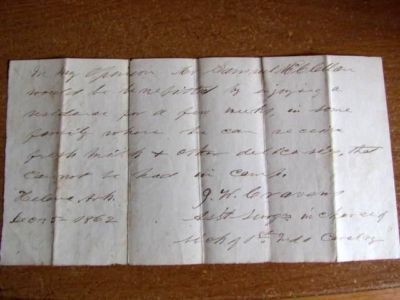 In my opinion Mr Samuel McClellan
would be benefitted by enjoying a
residence for a few weeks, in some
family where he can receive
fresh milk & other delicacies, that
cannot be had in camp.
Helena Ark. J. W. Cravens
Dec 5 1862 Asst Surg in charge of
1st Ind Cavalry